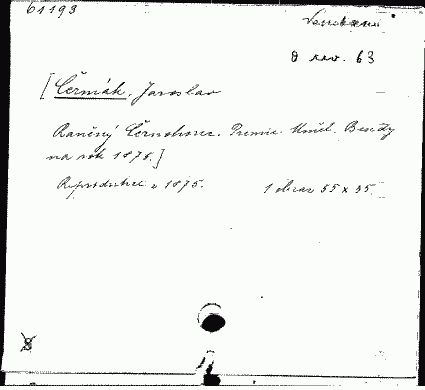 61193
8 rev. 63
[Čermák, Jaroslav
Raněný Černohorec. Premie. Uměl. Besedy
na rok 1875.]
Reprodukce z 1875. 1 obraz 55 x 35.